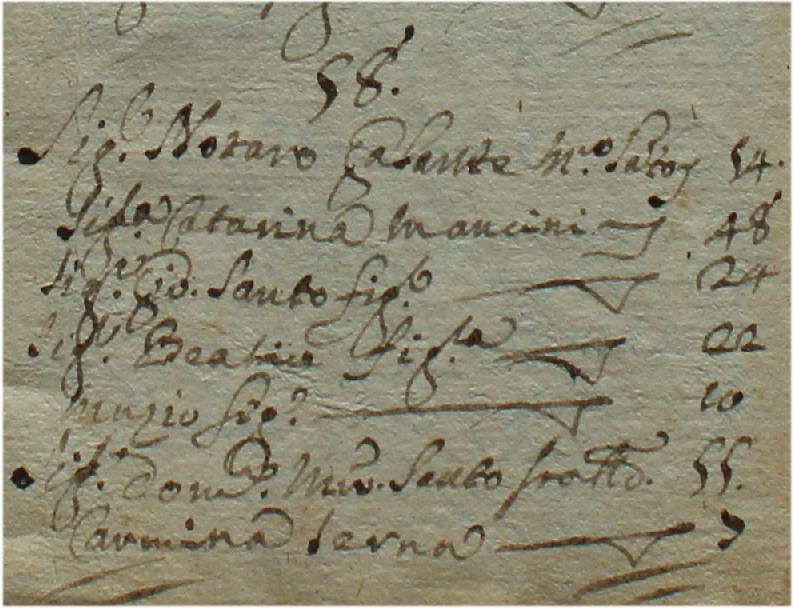 58.
Sig.r Notaro Casante M.o Santo 54.
Sig.a Catarina Mancini 48
Sig.r Gio. Santo fig.o 24
Sig.a Beatrice fig.a 22
Muzio fig.o 10
Sig.r Dom.co Santo fratello. 55.
Carmina serva 7